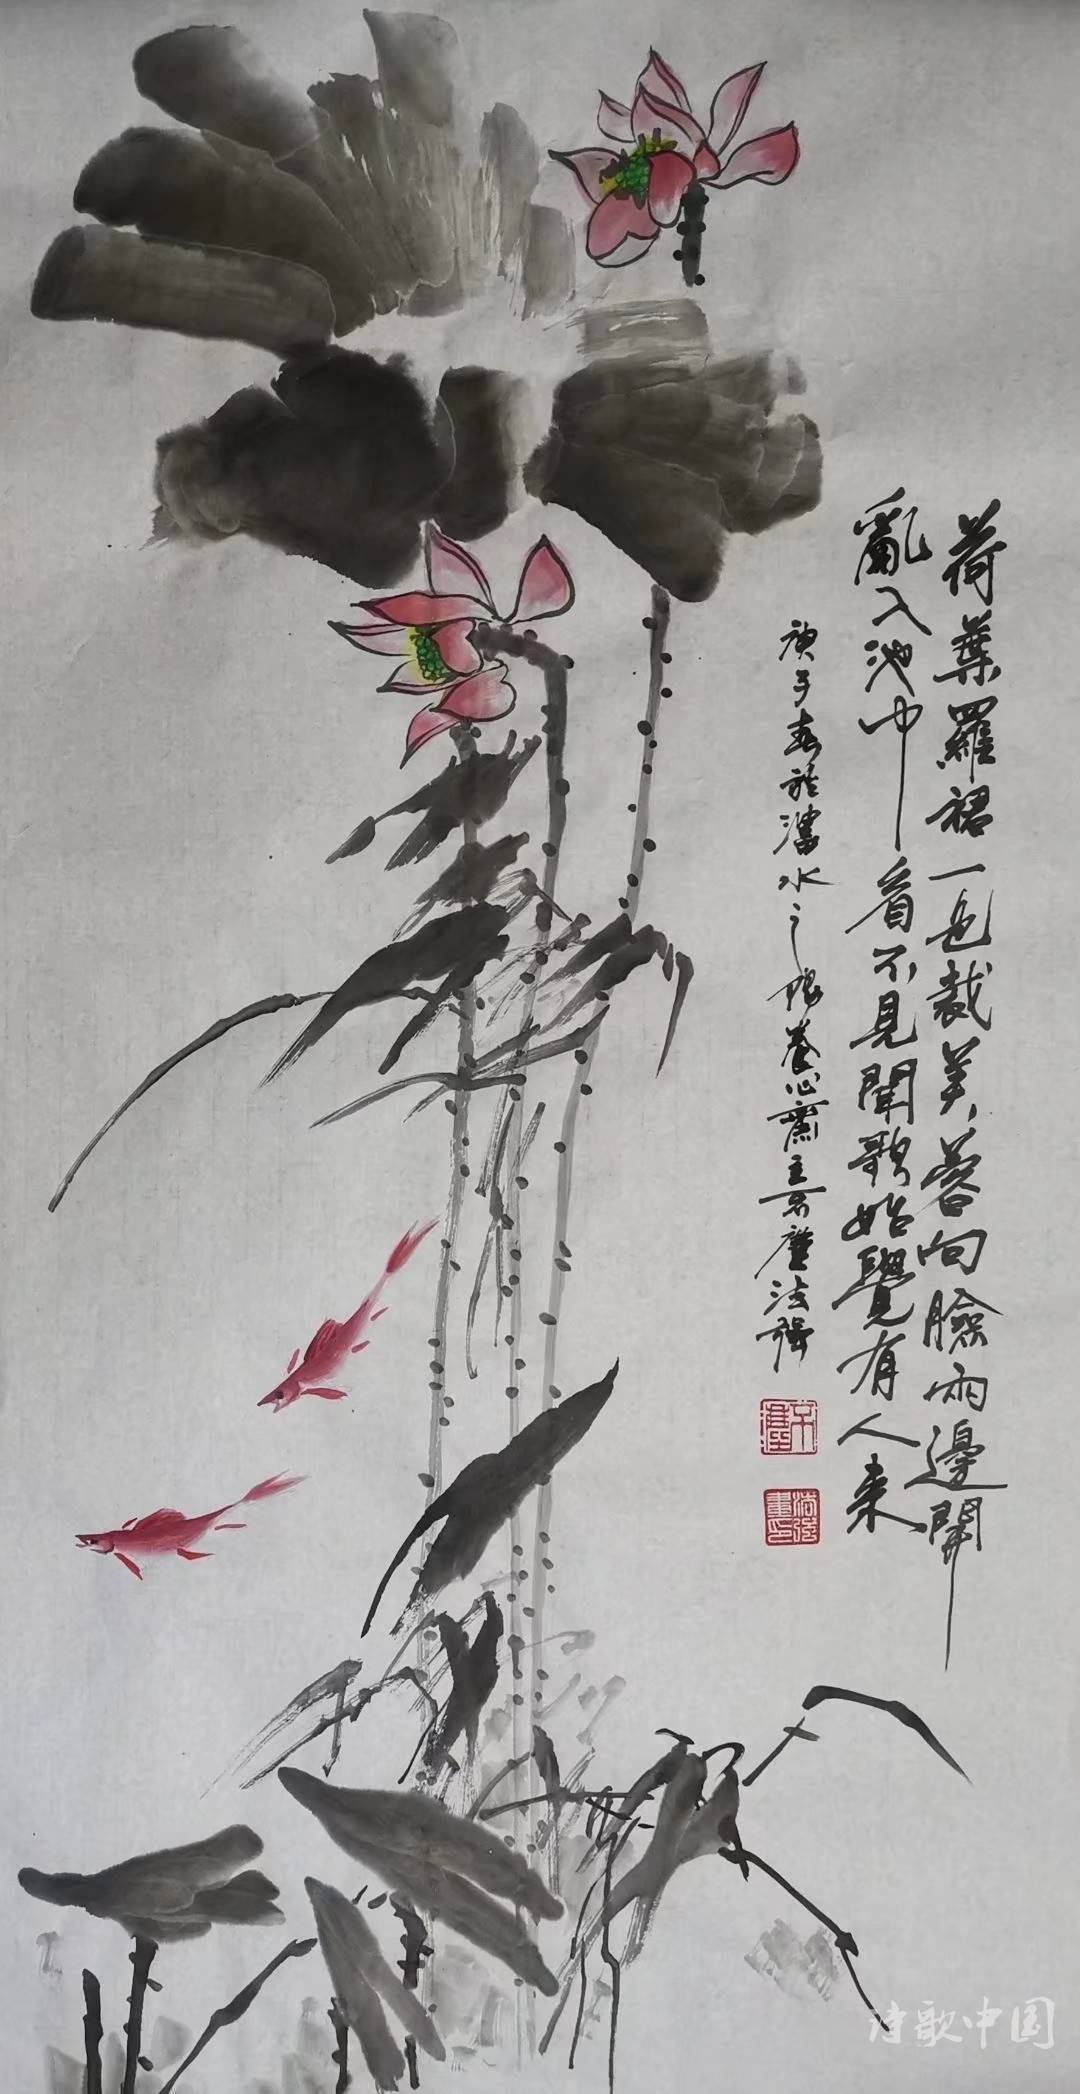 荷葉羅裙一色裁芙蓉向臉兩邊開
亂入池中看不見聞歌始覺有人来
庚子春於水之陽養心齋主法强
诗歌中国